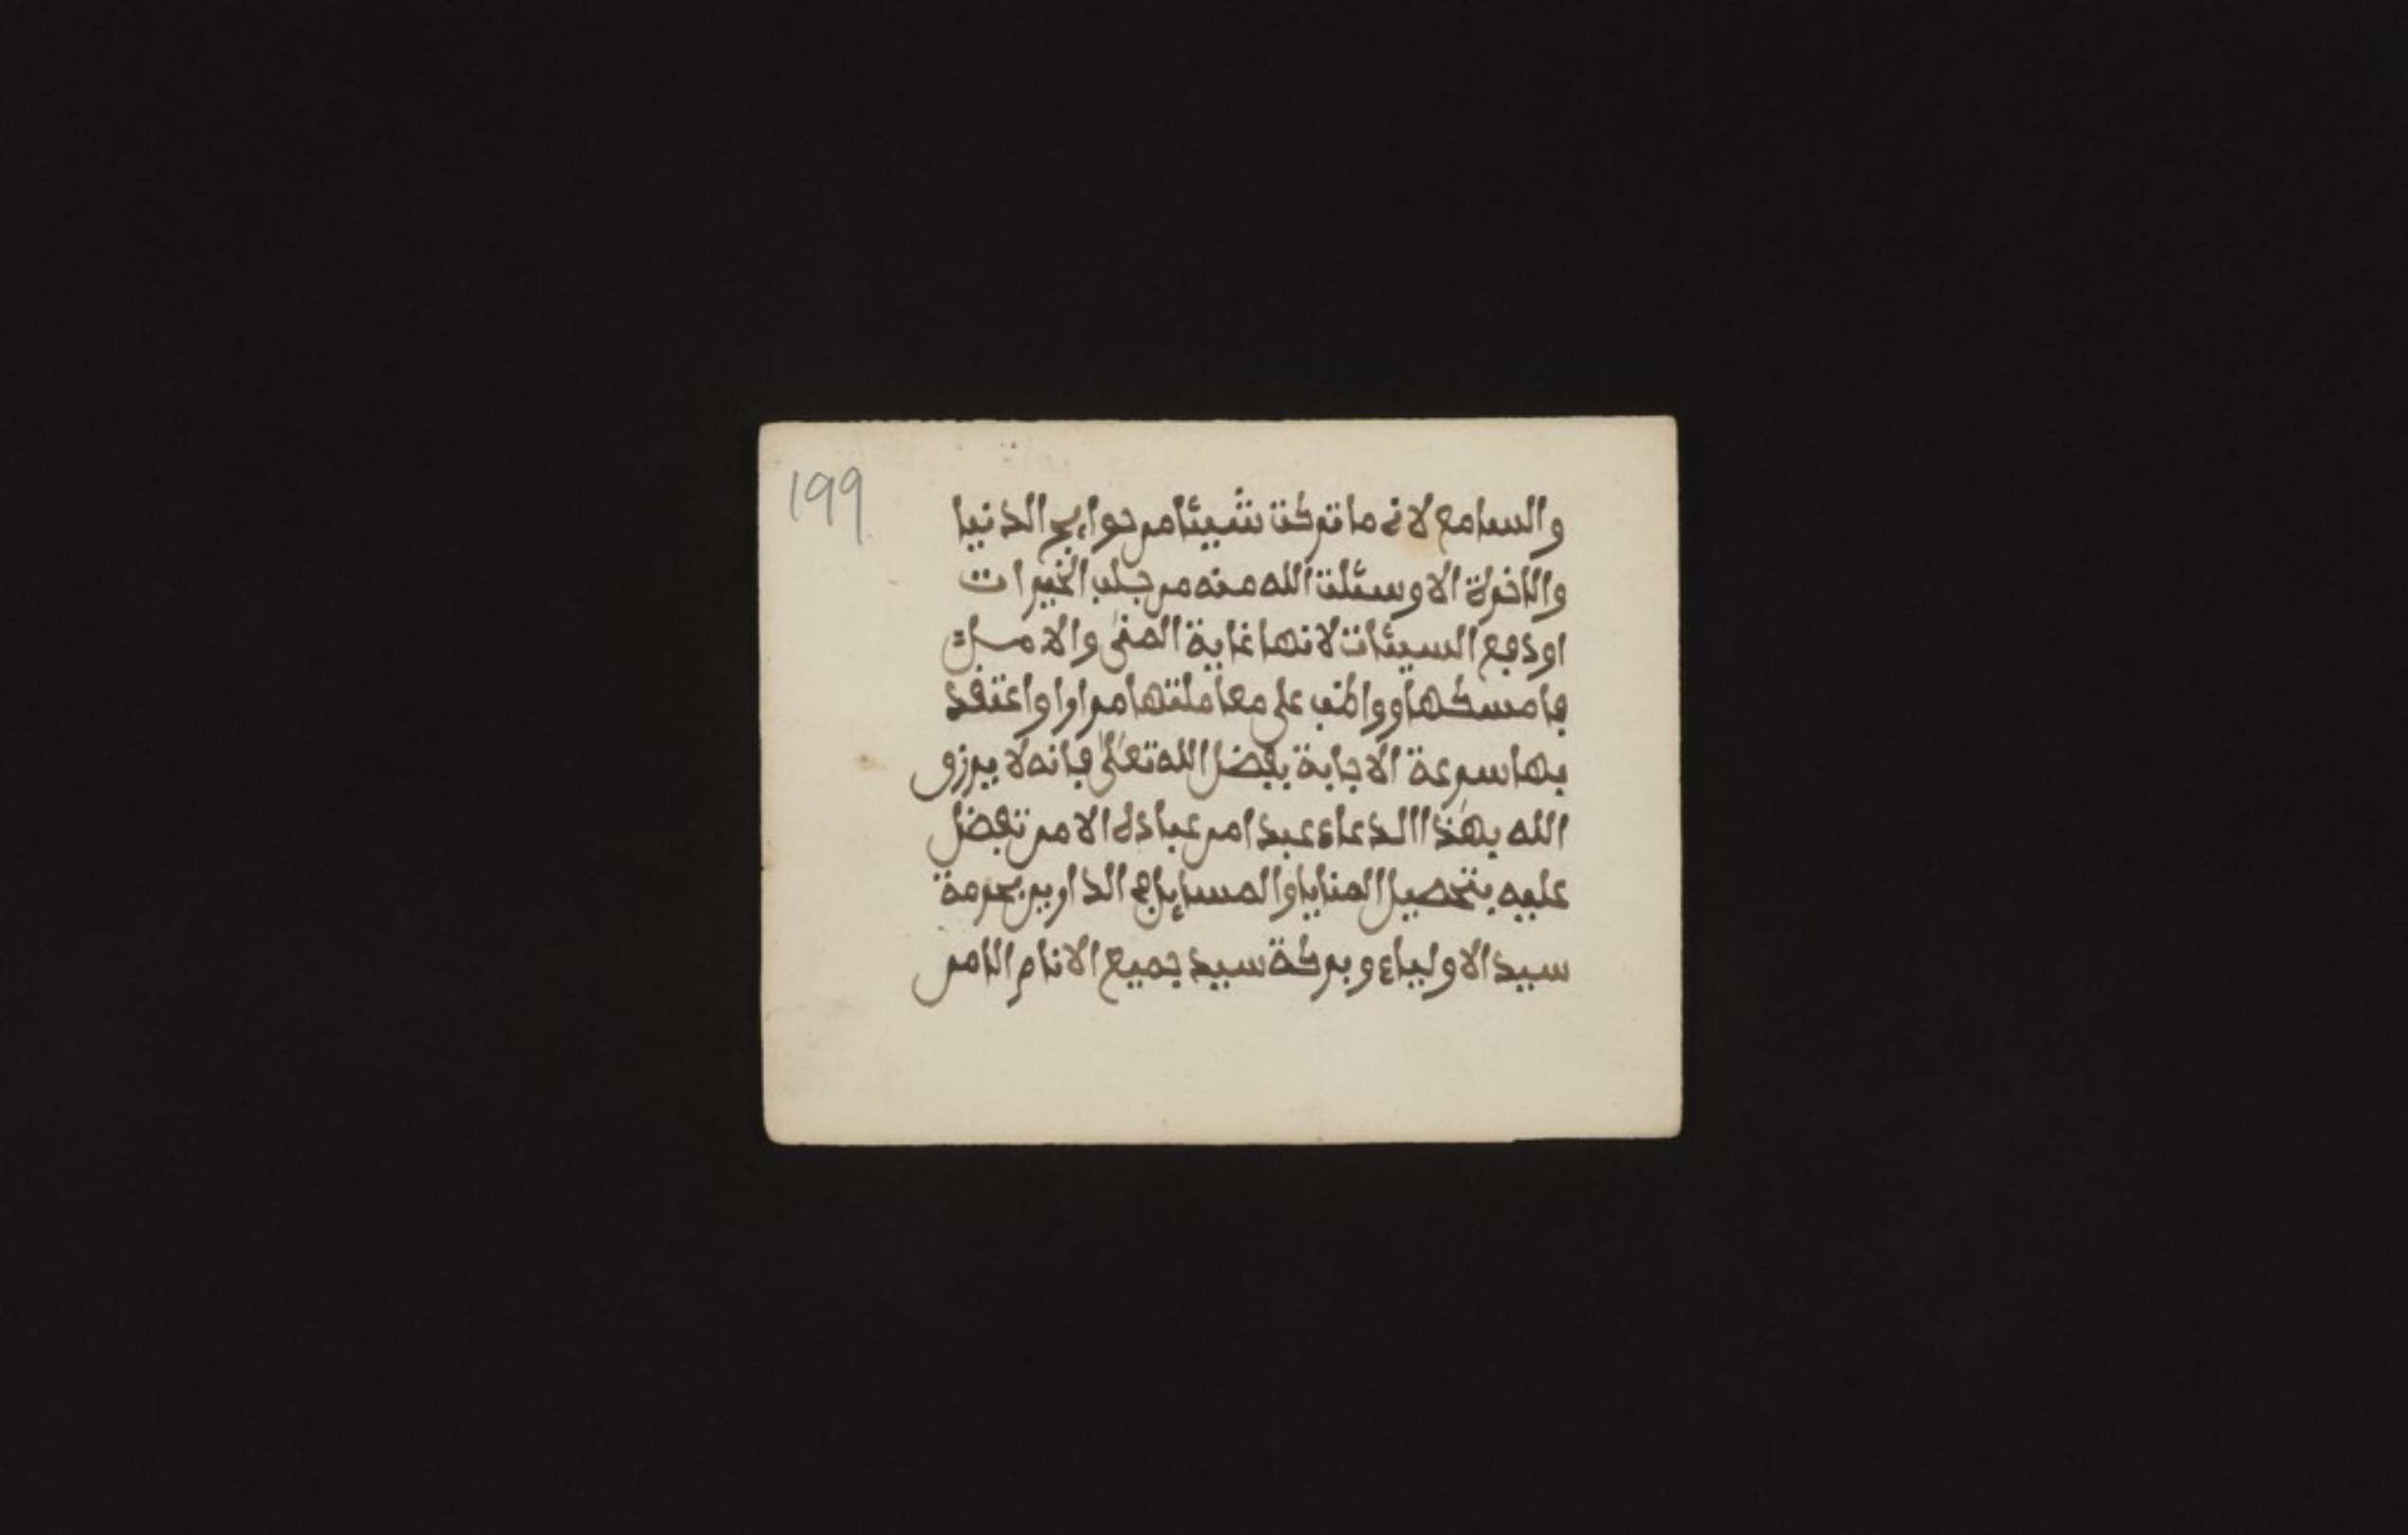 199
والسامع لانه ما تركت شيئا من حوايج الدنيا
والاخرة الا وسئلت الله منه من جلب الخيرات
او دفع السيئات لانها غاية المنى والامل
فامسكها وواظب على معاملتها مرارا واعتقد
بها سرعة الاجابة بفضل الله تعلى فانه لا يرزق
الله بهذا الدعاء عبدا من عباده الا من تفضل
عليه بتحصيل المنايا والمسايل في الدارين بحرمة
سيد الاولياء وبركة سيد جميع الانام اامن